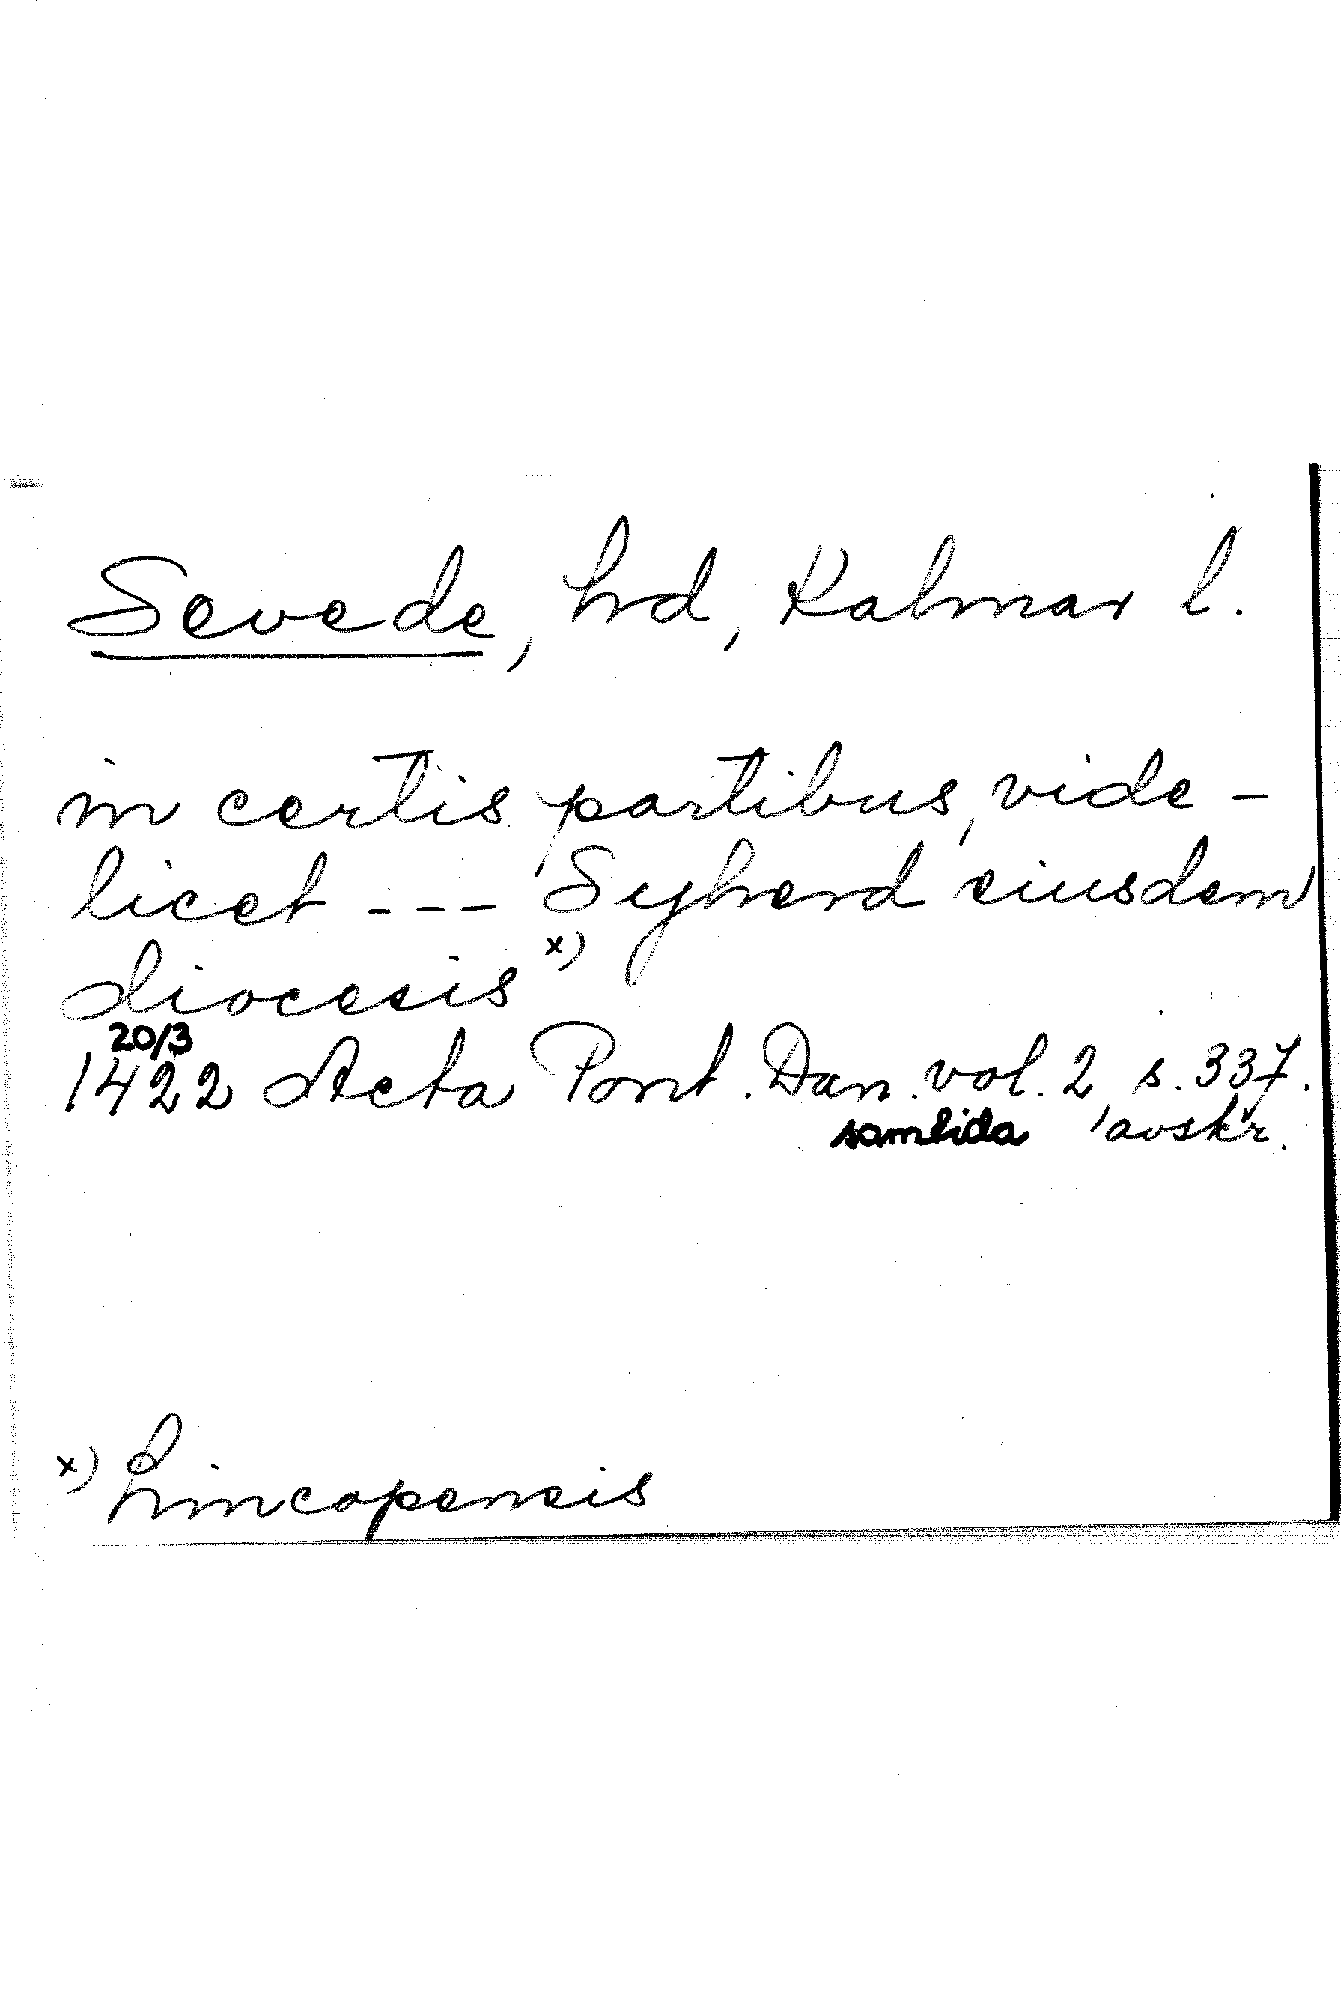 Sevede, hrd, Kalmar l.
in certis partibus, vide-
licet --- Syherd eiusdem
diocesis x)
20/3
1422 Acta Pont. Dan. vol. 2 s. 337.
samtida avskr.
x) Lincopensis